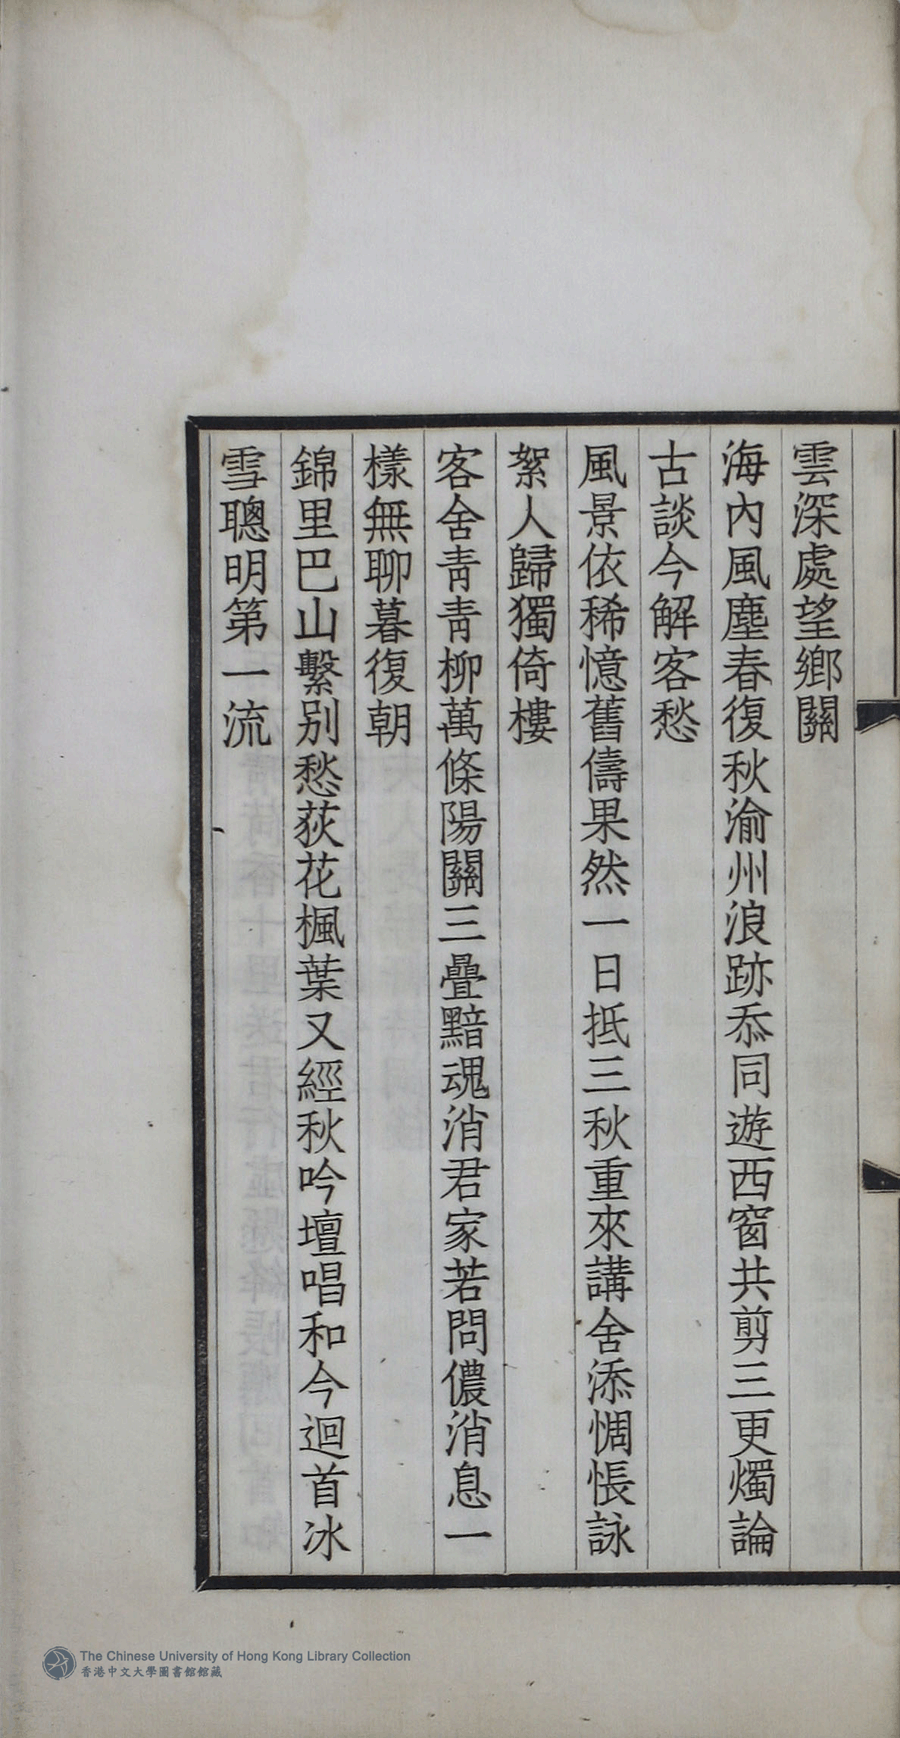 雲深處望鄉關
海內風塵春復秋渝州浪跡忝同遊西窗共剪三更燭論
古談今解客愁
風景依稀憶舊儔果然一日抵三秋重來講舍添惆悵詠
絮人歸獨倚樓
客舍青青柳萬條陽關三疊黯魂消君家若問儂消息一
樣無聊暮復朝
錦里巴山繫別愁荻花楓葉又經秋吟壇唱和今迴首冰
雪聰明第一流
The Chinese University of Hong Kong Library Collection
香港中文大學圖書館館藏